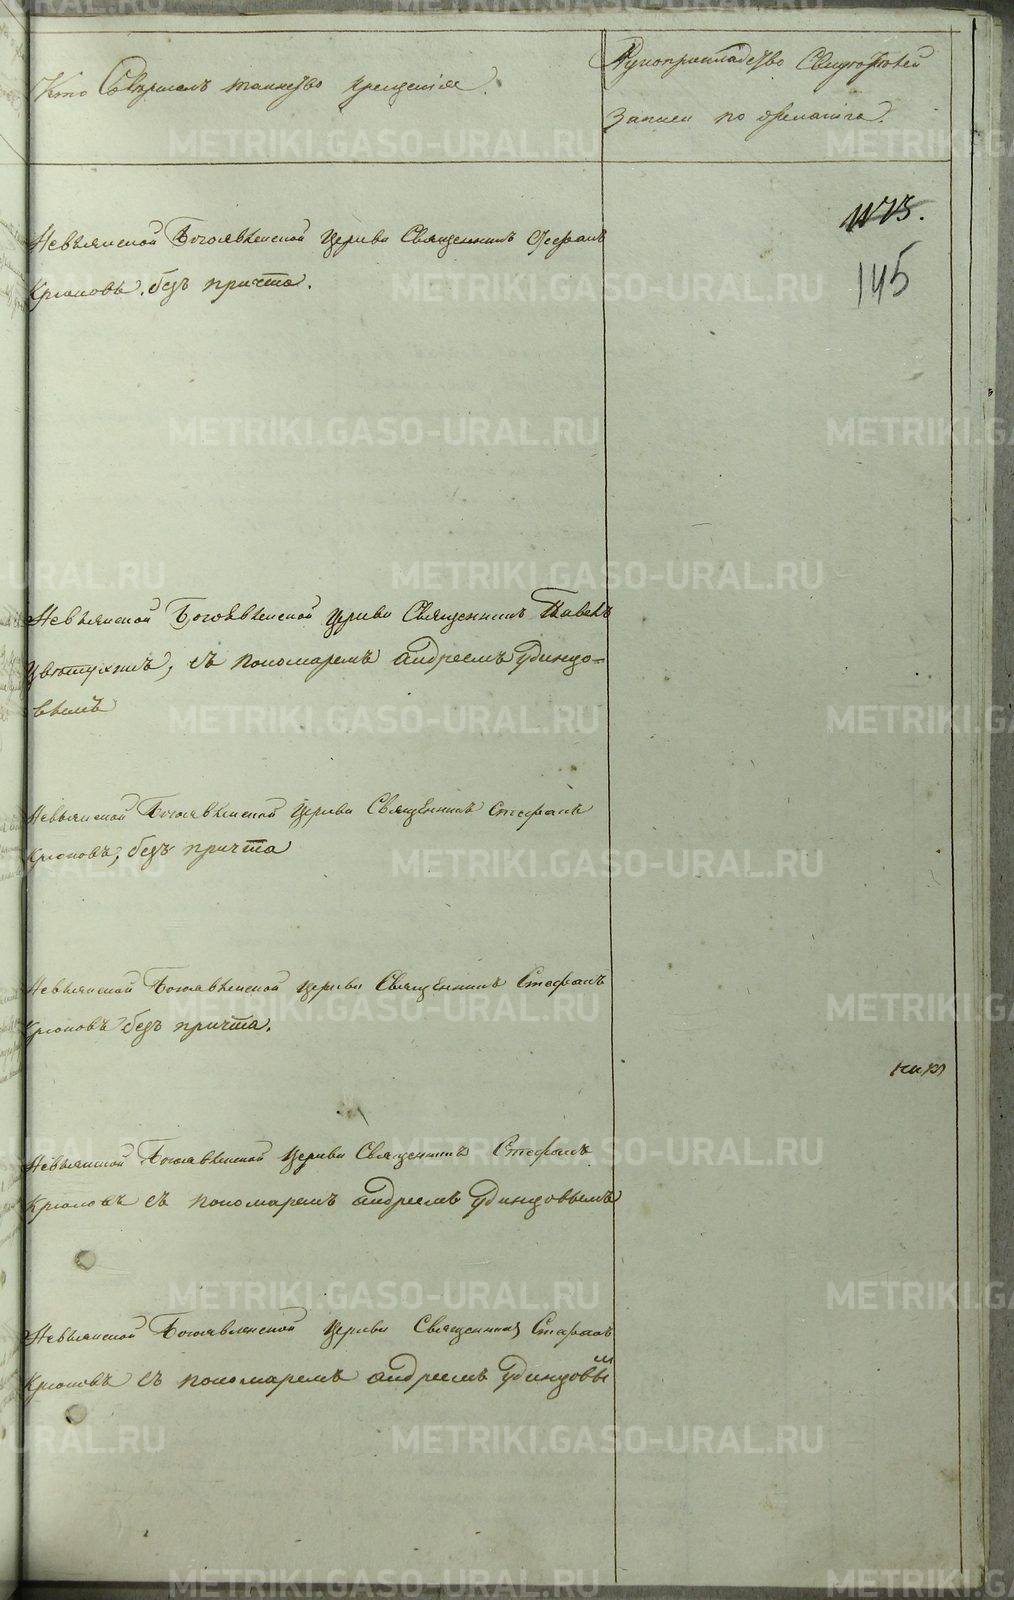 Кто Совершалъ таинство крещенія.
Рукоприкладство Свидѣтелей
Записи по желанію.
145
Невьянской Богоявленской церкви Священникъ Стефанъ
Крюковъ, безъ причта.
Невьянской Богоявленской церкви Священникъ Павелъ
Цвѣтухинъ, съ пономаремъ Андреемъ Удинцо-
вымъ
Невьянской Богоявленской церкви Священникъ Стефанъ
Крюковъ, безъ причта
Невьянской Богоявленской церкви Священникъ Стефанъ
Крюковъ безъ причта.
Невьянской Богоявленской церкви Священникъ Стефанъ
Крюковъ съ пономаремъ Андреемъ Удинцовымъ
Невьянской Богоявленской церкви Священникъ Стефанъ
Крюковъ съ пономаремъ Андреемъ Удинцовым
METRIKI.GASO-URAL.RU